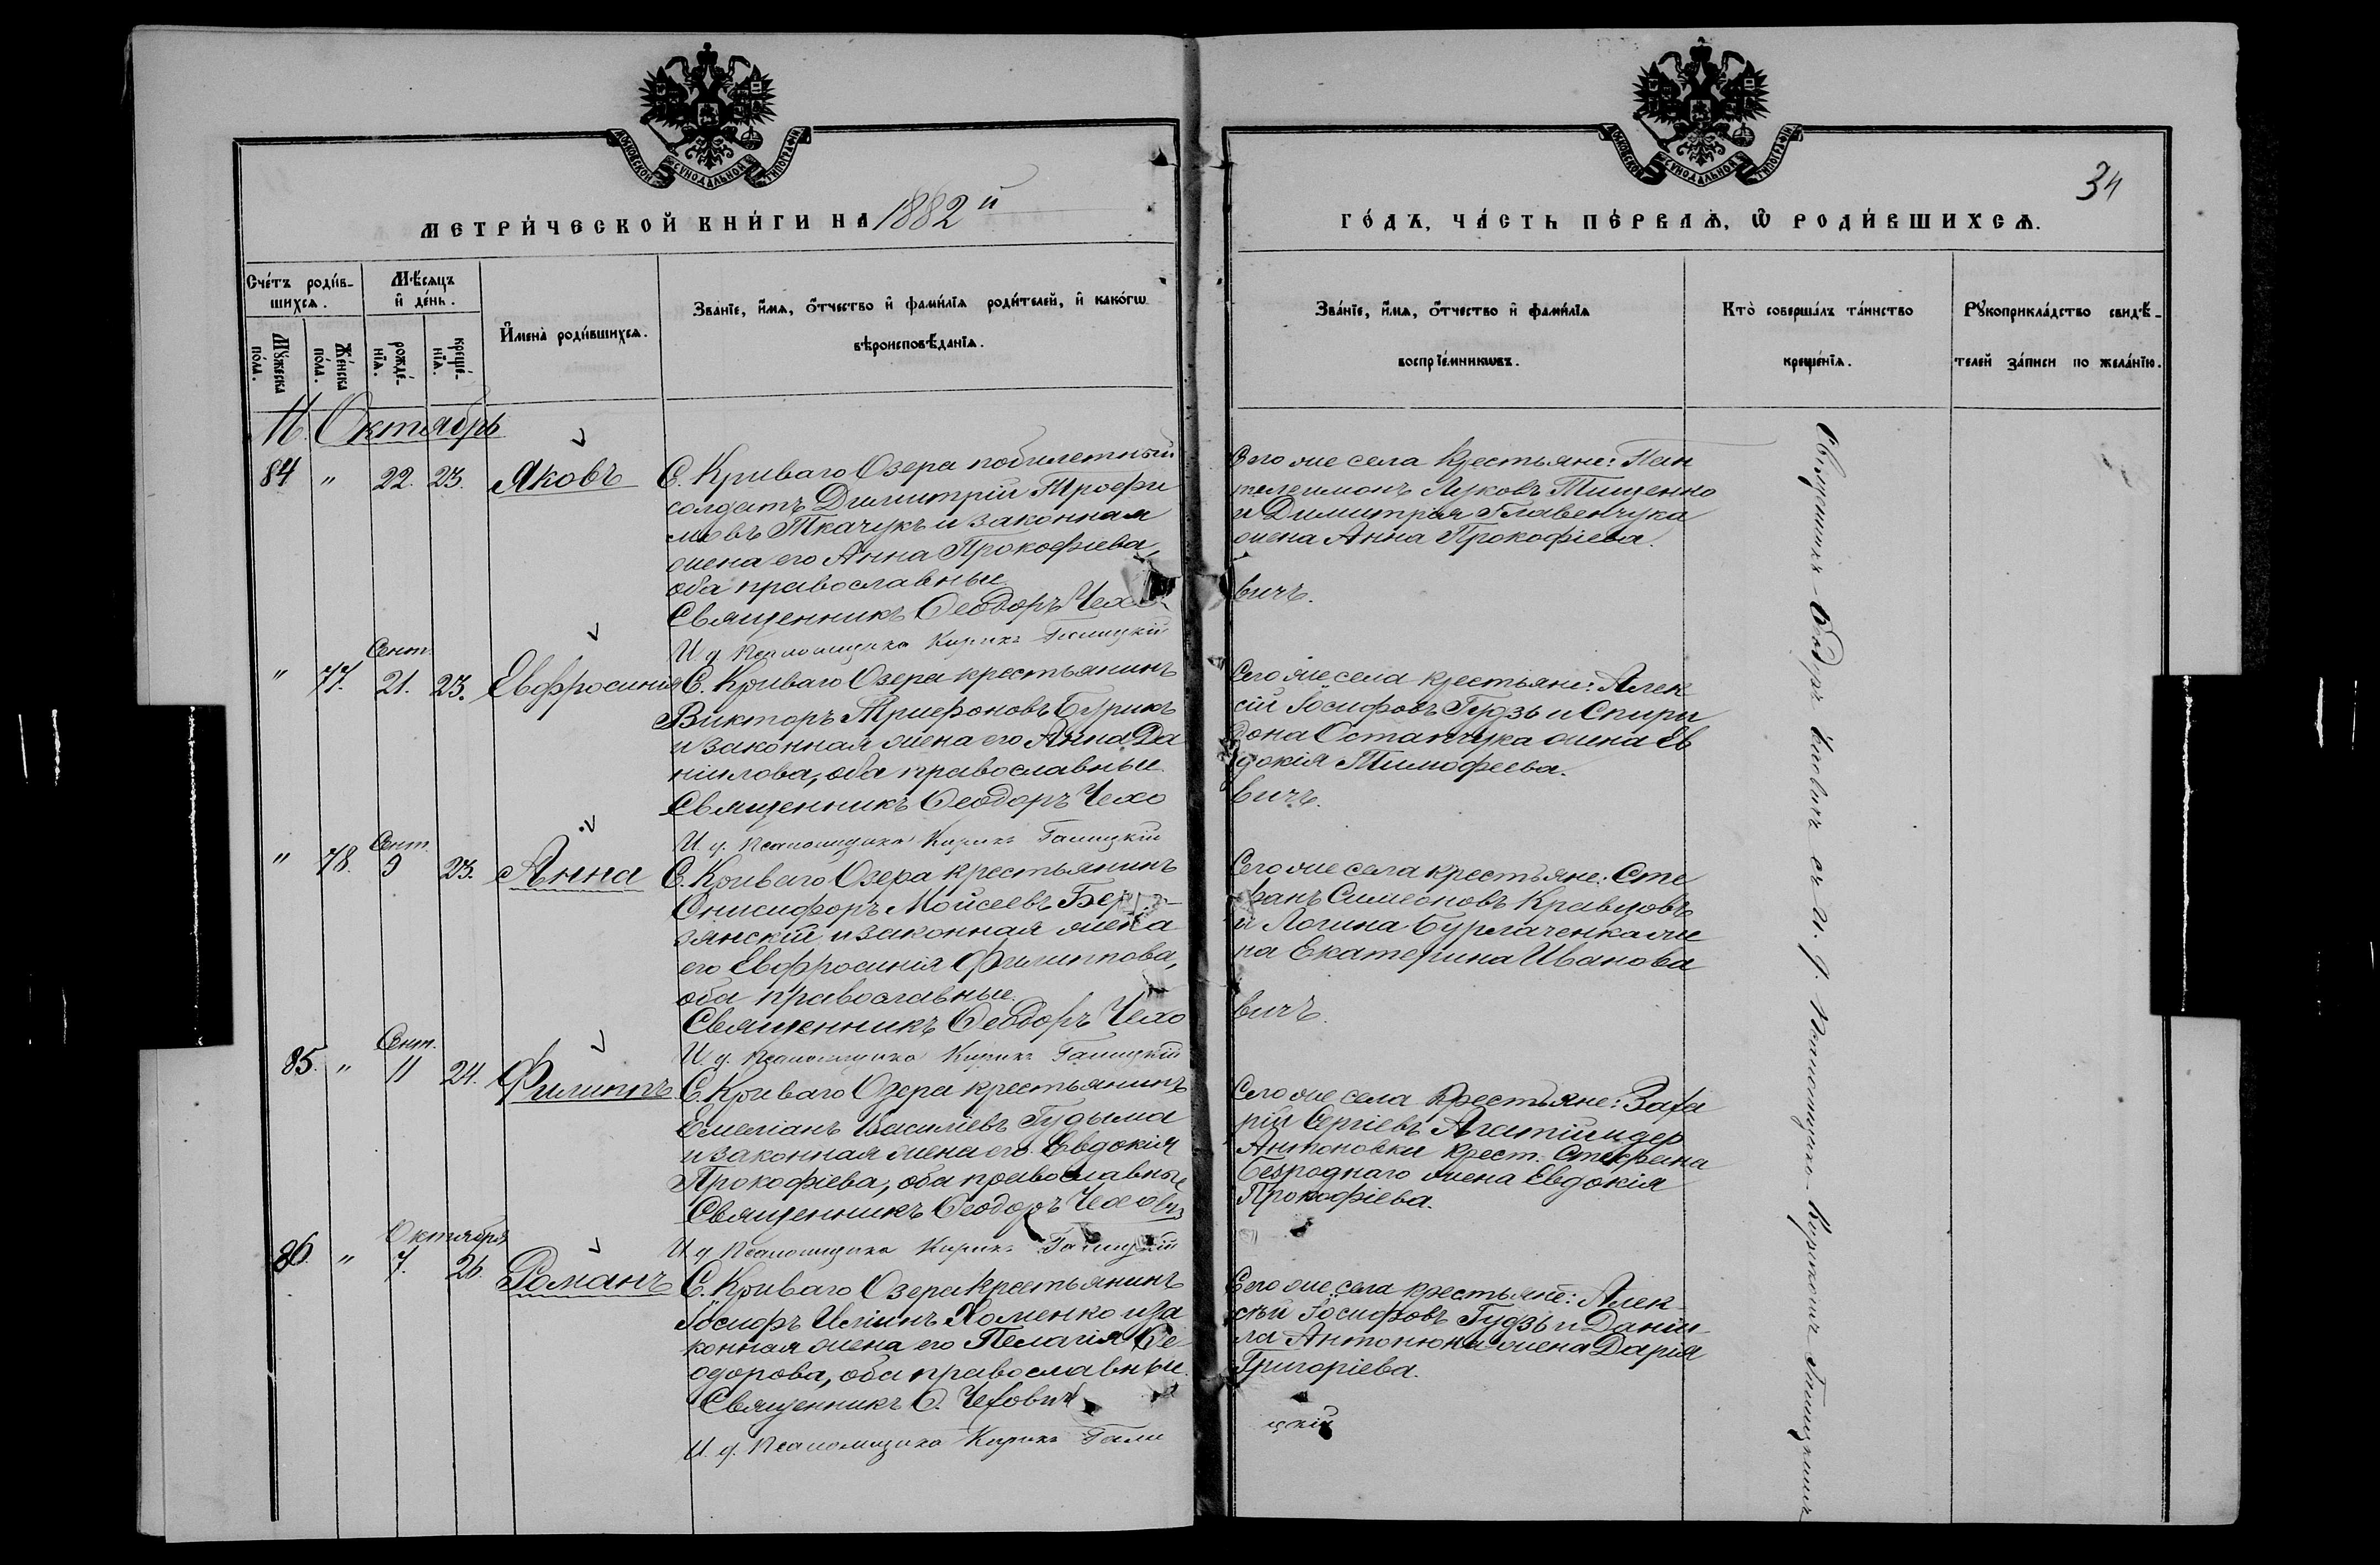 МОСКОВСКОЙ СУНОДАЛЬНОЙ ТИПОГРАФІИ
МЕТРИ́ЧЕСКОЙ КНИ́ГИ НА 1882 й
Сче́тъ роди́в-
шихсѧ.
Мꙋжеска
по́ла.
Же́нска
по́ла.
Мѣ́сѧцъ
и҆ де́нь.
рожде́-
нїѧ.
креще́-
нїѧ.
И҆мена̀ роди́вшихсѧ.
Зва́нїе, и҆́мѧ, ѻ҆́тчество и҆ фами́лїѧ роди́телей, и҆ како́гѡ
вѣроисповѣ́данїѧ.
Октябрь
84 " 22. 23. Яковъ
С. Криваго Озера побилетный
солдатъ Димитрій Трофи
мовъ Ткачукъ и законная
жена его Анна Прокофіева,
оба православные.
Священникъ Ѳеодоръ Чехо
И. д. Псаломщика Кирикъ Галицкій
Сент.
" 77. 21. 23. Евфросинія
С. Криваго Озера крестьянинъ
Викторъ Трифоновъ Бурикъ
и законная жена его Анна Да
ніилова, оба православные.
Священникъ Ѳеодоръ Чехо
И. д. Псаломщика Кирикъ Галицкій
Сент.
" 78. 9 23. Анна
С. Криваго Озера крестьянинъ
Онисифоръ Мойсеевъ
зянскій и законная жена
его Евфросинія Филиппова,
оба православные.
Священникъ Ѳеодоръ Чехо
И. д. Псаломщика Кирикъ Галицкій
Сент.
85. " 11 24. Филиппъ
С. Криваго Озера крестьянинъ
Емеліанъ Василіевъ Гудыма
и законная жена его Евдокія
Прокофіева, оба православные
Священникъ Ѳеодоръ Чехович
И. д. Псаломщика Кирикъ Галицкій
Октября
86. " 7. 26. Романъ
С. Криваго Озера крестьянинъ
Іосифъ Иліинъ Хоменко и за
конная жена его Пелагія Ѳе-
одорова, оба православные.
Священникъ Ѳ. Чеховичъ
И. д. Псаломщика Кирикъ Гали
МОСКОВСКОЙ СУНОДАЛЬНОЙ ТИПОГРАФІИ
34
ГО́ДЪ, ЧА́СТЬ ПЕ́РВАѦ, Ѿ РОДИ́ВШИХСѦ.
Зва́нїе, и҆́мѧ, ѻ҆́тчество и҆ фами́лїѧ
воспрїе́мникѡвъ.
Кто̀ соверша́лъ та́инство
креще́нїѧ.
Рꙋкоприкла́дство свидѣ́-
телей за́писи по жела́нїю.
Сего же села крестьяне: Пан
телеимонъ Луковъ Тищенко
и Димитрія Главенчука
жена Анна Прокофіева.
вичъ.
Сего же села крестьяне: Алек
сій Іосифовъ Гудзь и Спири
дона Остапчука жена Ев
докія Тимофеева.
вичъ.
Сего же села крестьяне: Сте
фанъ Симеоновъ Кравцовъ
и Логина Бурлаченка же
на Екатерина Иванова
вичъ.
Сего же села крестьяне: Заха
рій Сергіевъ и дер
Антоновки крест. Стефана
Безроднаго жена Евдокія
Прокофіева.
Сего же села крестьяне: Алек-
сѣй Іосифовъ Гудзь и Даніи-
ла Антонюка жена Дарія
Григоріева.
цкій
Священникъ Ѳеодоръ Чеховичъ съ и. д. Псаломщика Кирикомъ Галицкимъ